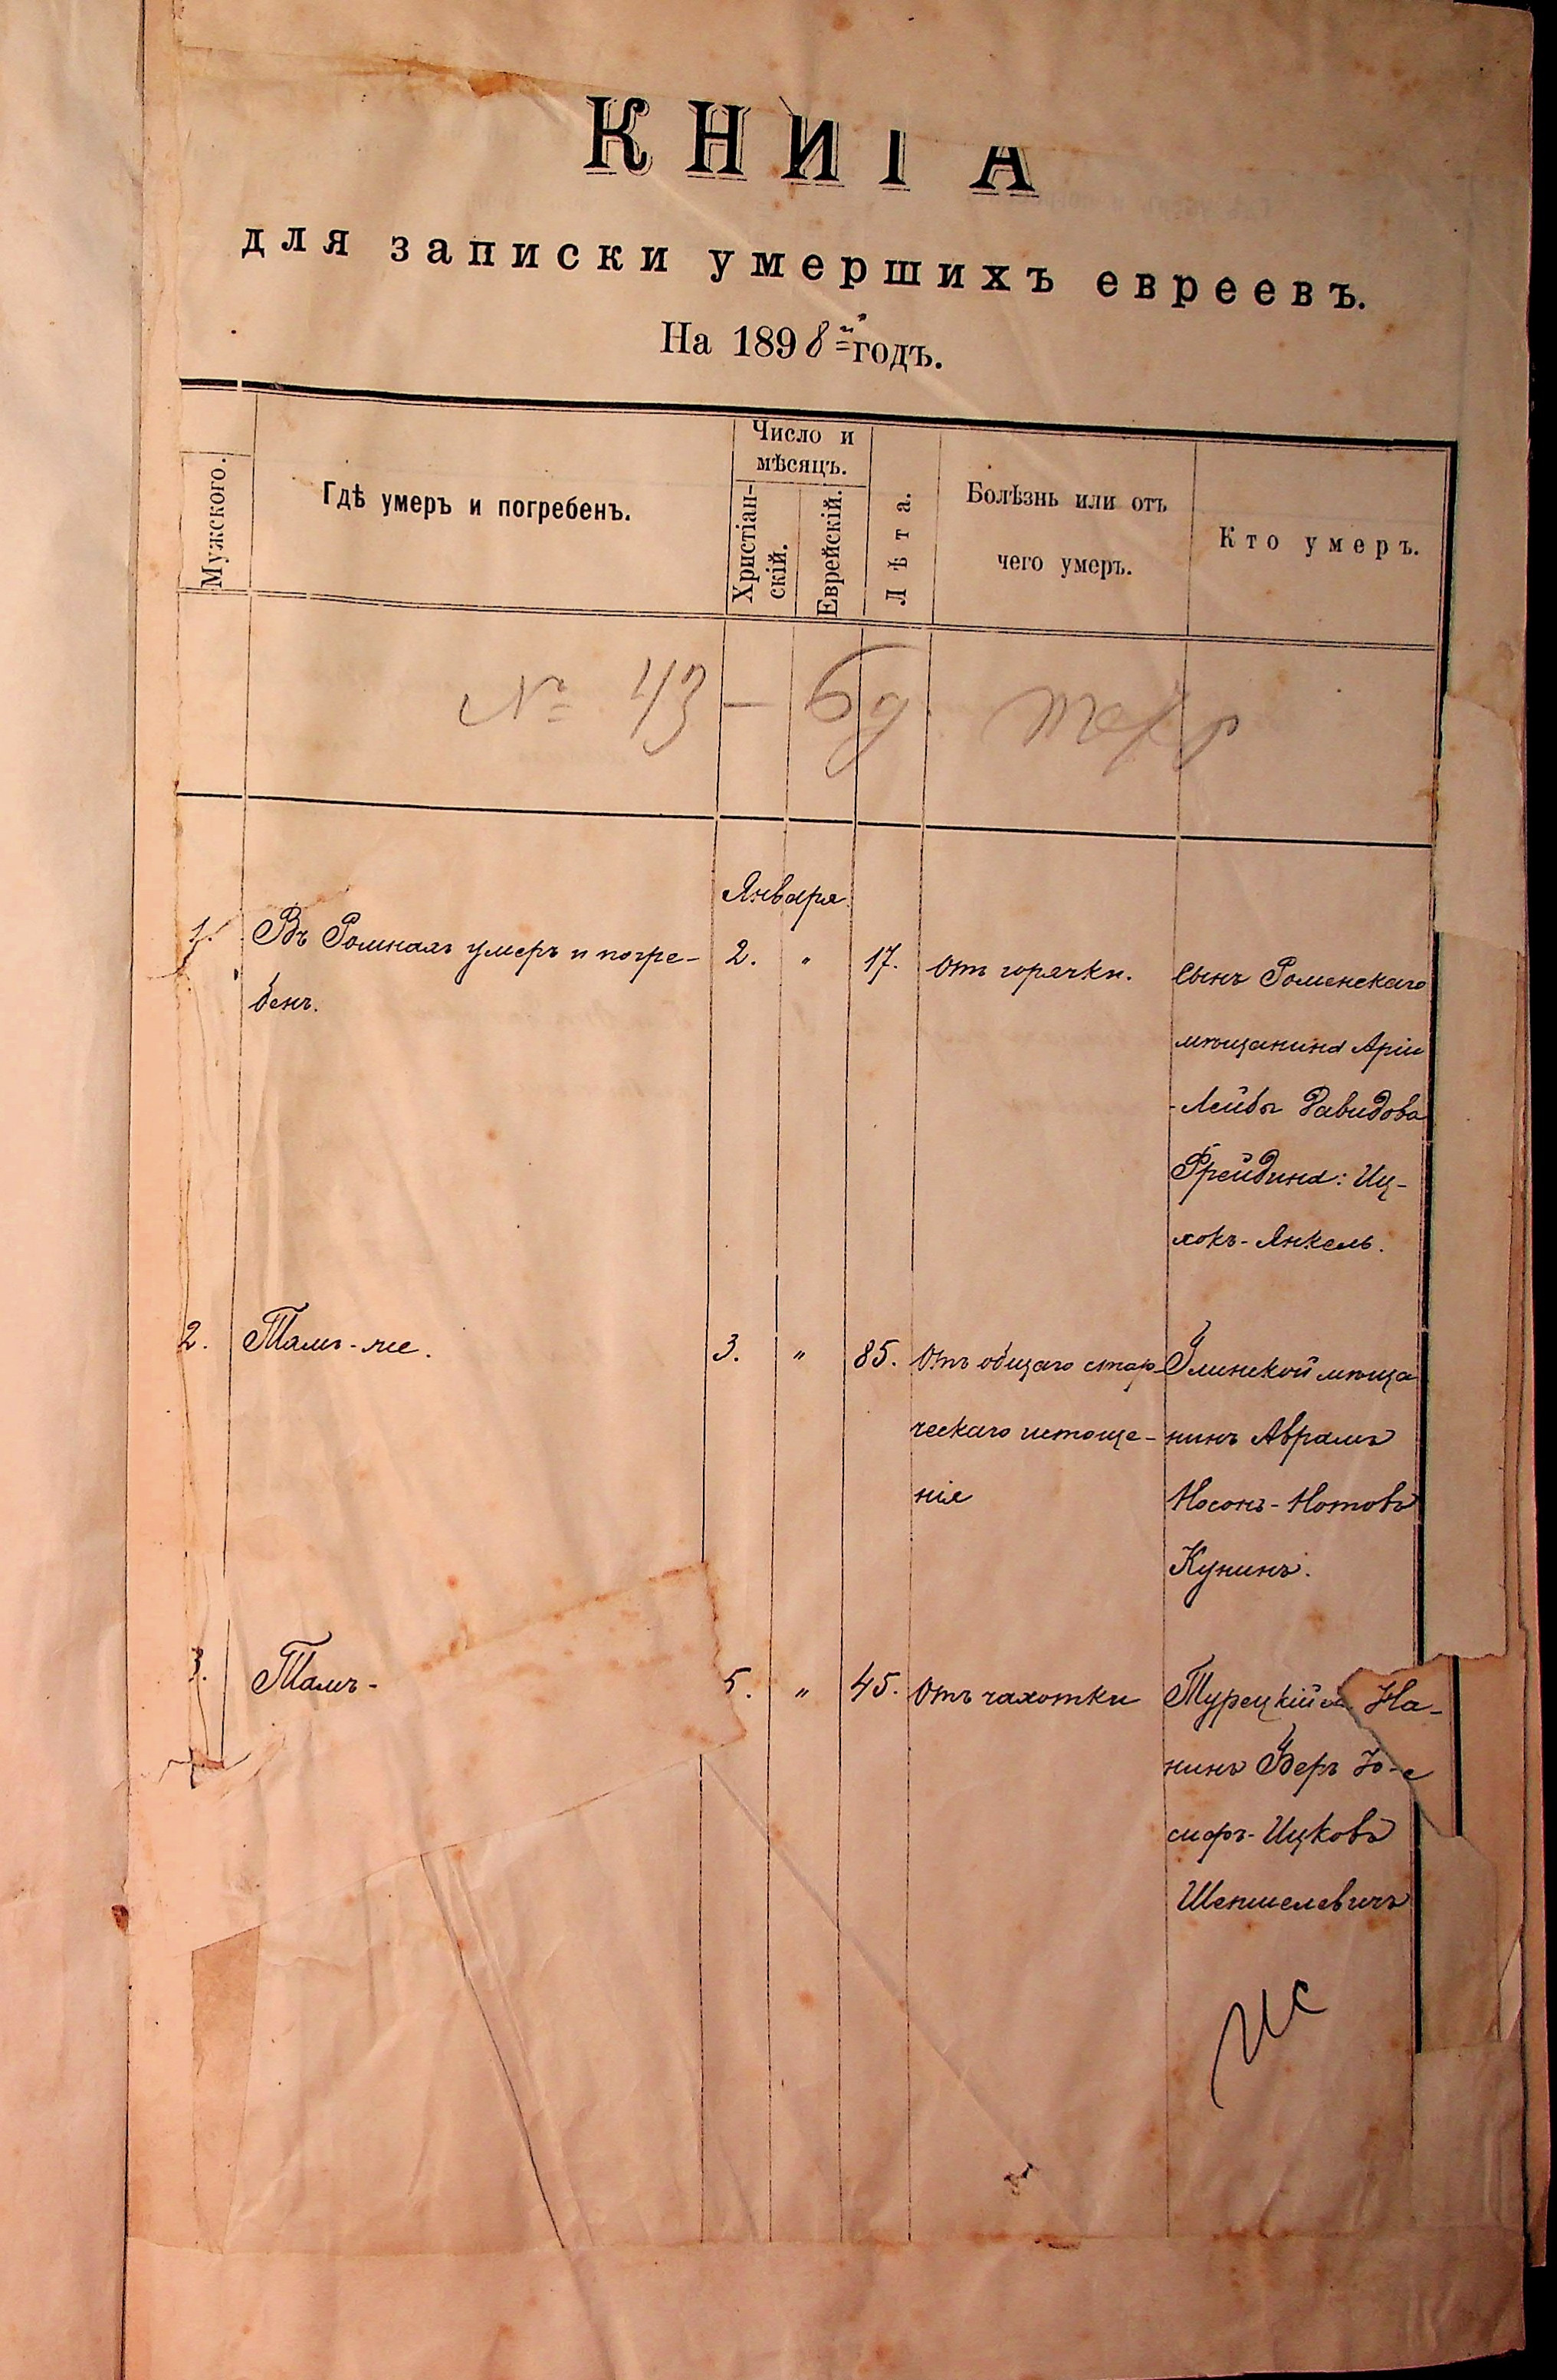 КНИГА
для записки умершихъ евреевъ.
На 1898й годъ.
Мужского.
Гдѣ умеръ и погребенъ.
Число и
мѣсяцъ.
Христіан-
скій.
Еврейскій.
Лѣта.
Болѣзнь или отъ
чего умеръ.
Кто умеръ.
№ 43 — 69
Января
1. Въ Ромнахъ умеръ и погре- 2. " 17. отъ горячки. Сынъ Роменскаго
бенъ.
мѣщанина Аріи
-Лейбы Давидова
Фрейдина: Иц-
хокъ-Янкель.
2. Тамъ-же. 3. " 85. Отъ общаго стар- Глинской мѣща
ческаго истоще- нинъ Аврамъ
нія Носонъ-Нотовъ
Кунинъ.
3. Тамъ- 5. " 45. Отъ чахотки Турецкій
нинъ Беръ Іо-
сифъ-Ицковъ
Шепшелевичъ